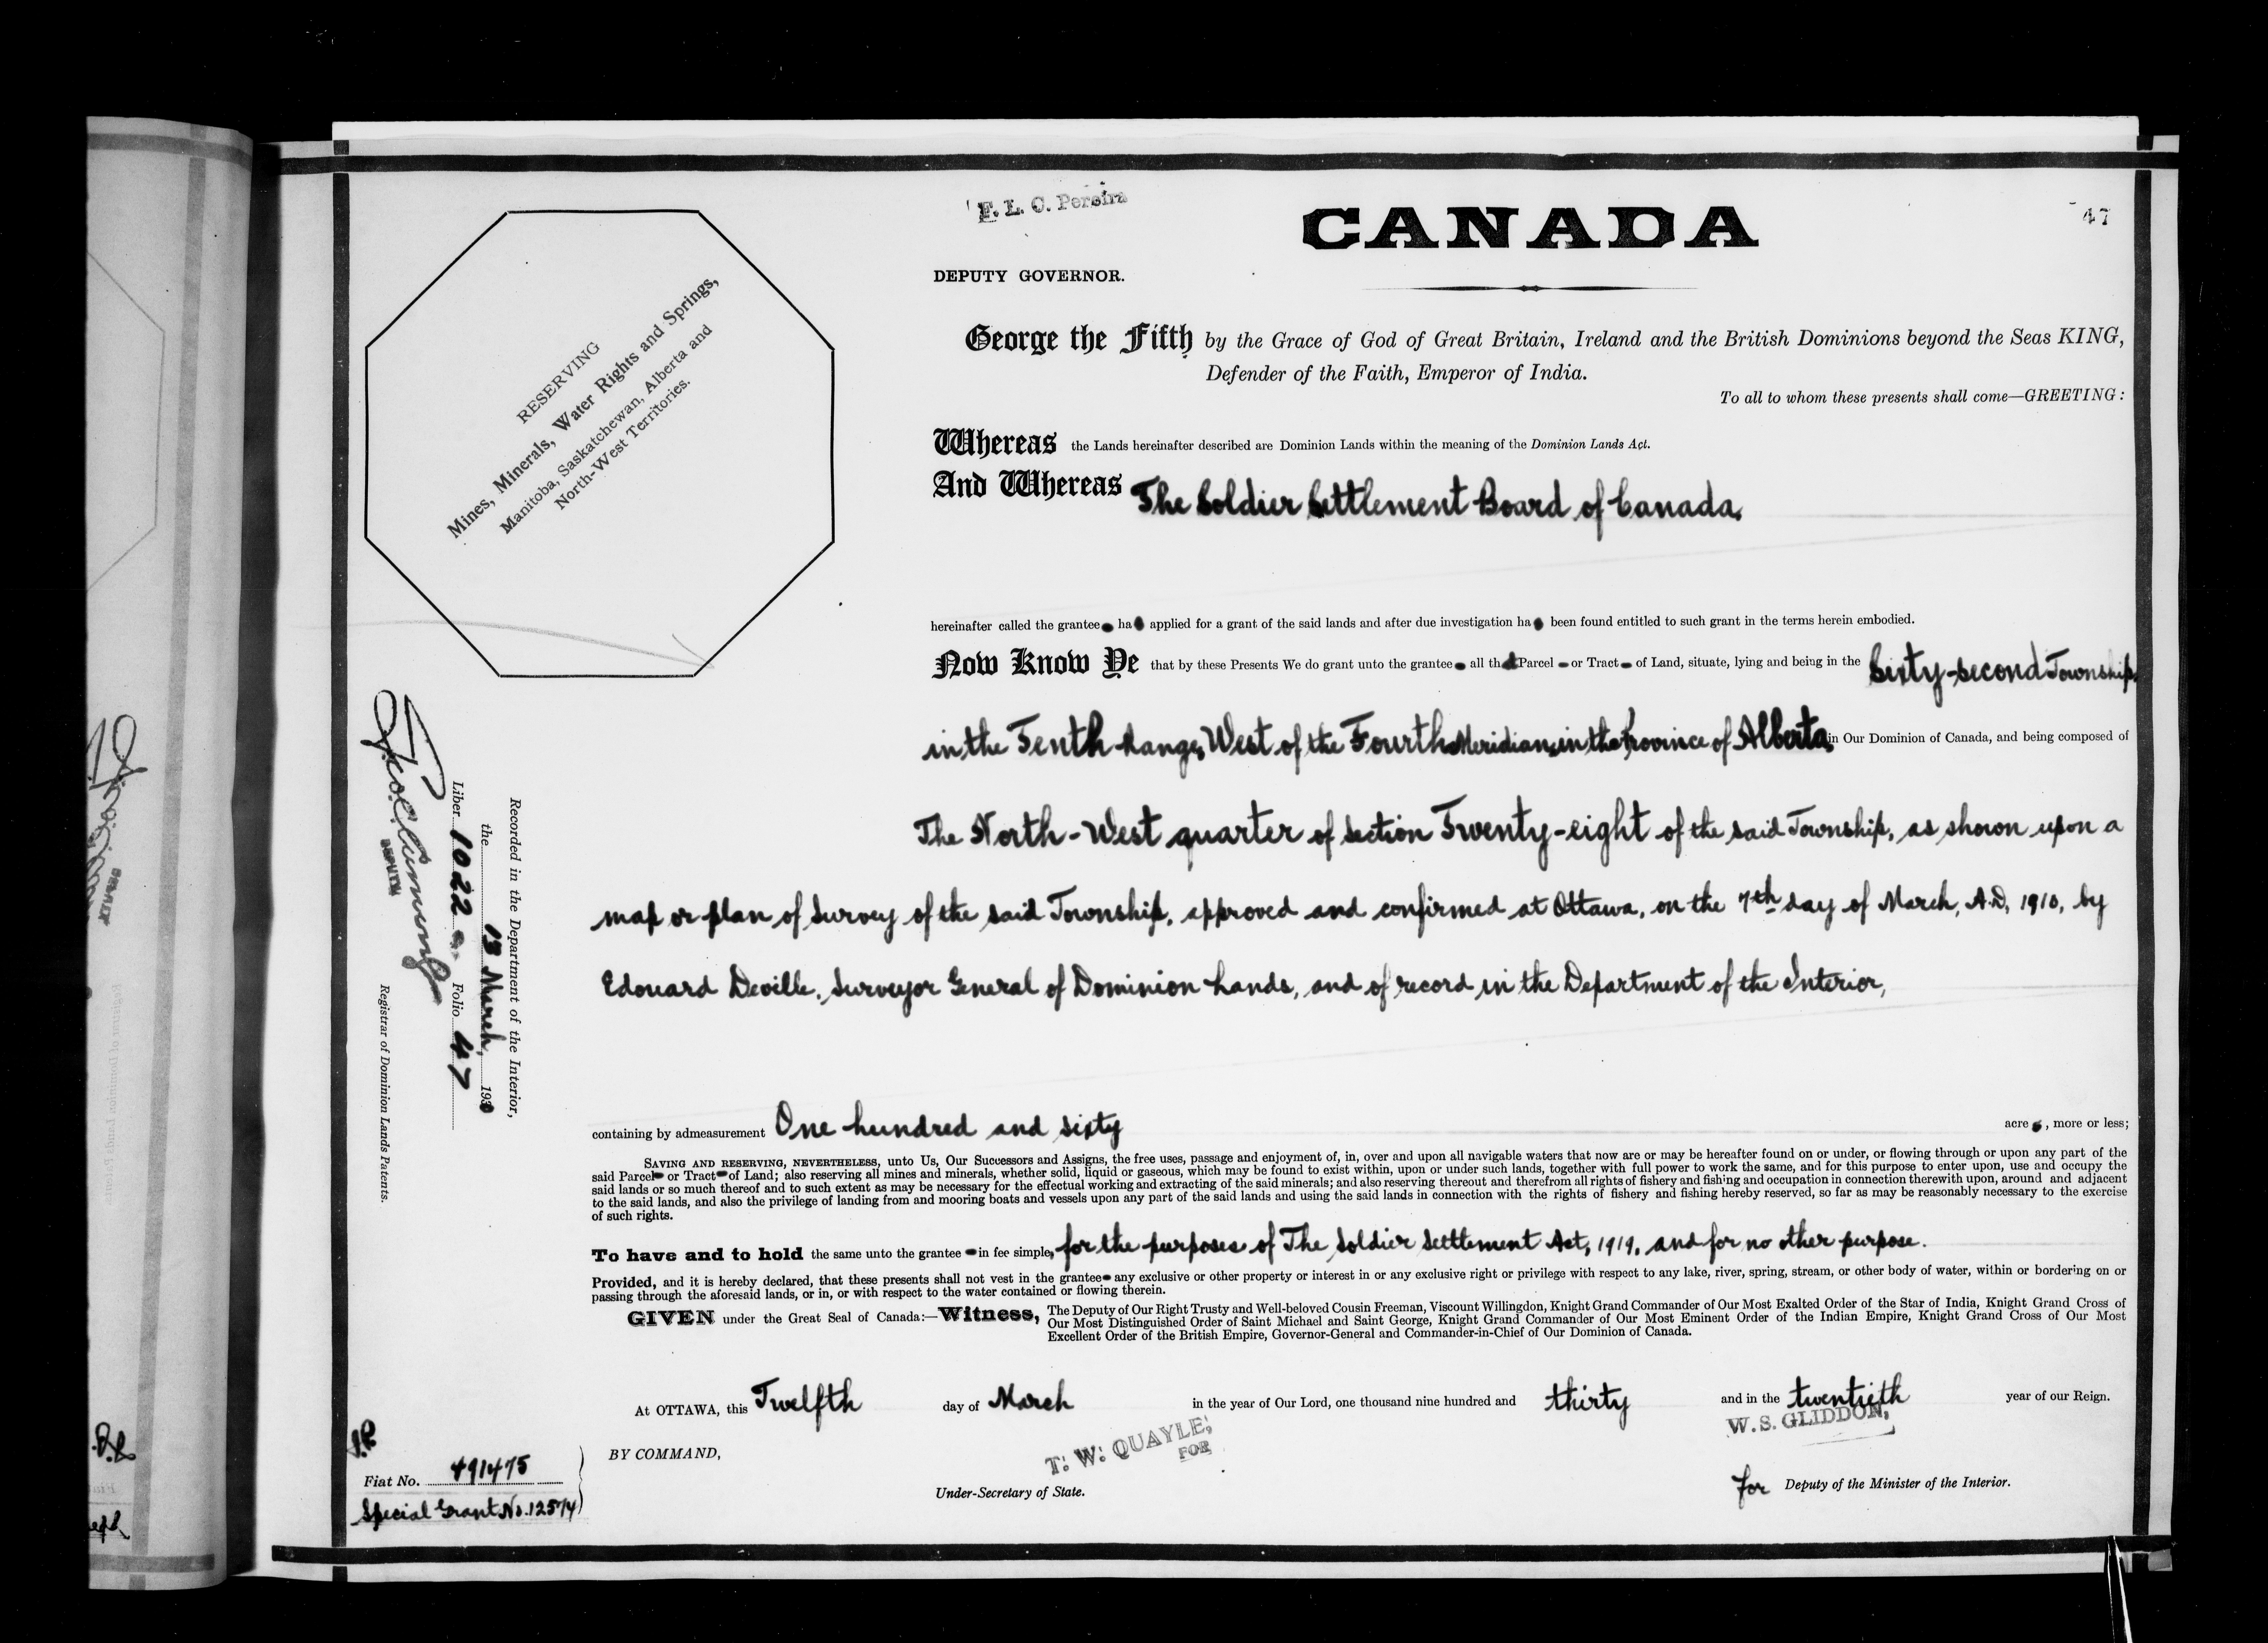 F. L. C. Pereira
CANADA
47
DEPUTY GOVERNOR.
RESERVING
Mines, Minerals, Water Rights and Springs,
Manitoba, Saskatchewan, Alberta and
North-West Territories.
George the Fifth by the Grace of God of Great Britain, Ireland and the British Dominions beyond the Seas KING,
Defender of the Faith, Emperor of India.
To all to whom these presents shall come—GREETING:
Whereas the Lands hereinafter described are Dominion Lands within the meaning of the Dominion Lands Act.
And Whereas The Soldier Settlement Board of Canada,
hereinafter called the grantee ha applied for a grant of the said lands and after due investigation ha been found entitled to such grant in the terms herein embodied.
Now Know Ye that by these Presents We do grant unto the grantee all that Parcel or Tract of Land, situate, lying and being in the Sixty-second Township,
in the Tenth Range, West of the Fourth Meridian, in the Province of Alberta, in Our Dominion of Canada, and being composed of
The North-West quarter of Section Twenty-eight of the said Township, as shown upon a
map or plan of survey of the said Township, approved and confirmed at Ottawa, on the 7th day of March, A.D, 1910, by
Edouard Deville, Surveyor General of Dominion Lands, and of record in the Department of the Interior,
Recorded in the Department of the Interior,
the 13 March, 1930
Liber 1022 Folio 47
DEPUTY
Registrar of Dominion Lands Patents.
containing by admeasurement One hundred and sixty acres, more or less;
SAVING AND RESERVING, NEVERTHELESS, unto Us, Our Successors and Assigns, the free uses, passage and enjoyment of, in, over and upon all navigable waters that now are or may be hereafter found on or under, or flowing through or upon any part of the
said Parcel or Tract of Land; also reserving all mines and minerals, whether solid, liquid or gaseous, which may be found to exist within, upon or under such lands, together with full power to work the same, and for this purpose to enter upon, use and occupy the
said lands or so much thereof and to such extent as may be necessary for the effectual working and extracting of the said minerals; and also reserving thereout and therefrom all rights of fishery and fishing and occupation in connection therewith upon, around and adjacent
to the said lands, and also the privilege of landing from and mooring boats and vessels upon any part of the said lands and using the said lands in connection with the rights of fishery and fishing hereby reserved, so far as may be reasonably necessary to the exercise
of such rights.
To have and to hold the same unto the grantee in fee simple, for the purposes of The Soldier Settlement Act, 1919, and for no other purpose.
Provided, and it is hereby declared, that these presents shall not vest in the grantee any exclusive or other property or interest in or any exclusive right or privilege with respect to any lake, river, spring, stream, or other body of water, within or bordering on or
passing through the aforesaid lands, or in, or with respect to the water contained or flowing therein.
GIVEN under the Great Seal of Canada:—Witness, The Deputy of Our Right Trusty and Well-beloved Cousin Freeman, Viscount Willingdon, Knight Grand Commander of Our Most Exalted Order of the Star of India, Knight Grand Cross of
Our Most Distinguished Order of Saint Michael and Saint George, Knight Grand Commander of Our Most Eminent Order of the Indian Empire, Knight Grand Cross of Our Most
Excellent Order of the British Empire, Governor-General and Commander-in-Chief of Our Dominion of Canada.
At OTTAWA, this Twelfth day of March in the year of Our Lord, one thousand nine hundred and thirty and in the twentieth year of our Reign.
W. S. GLIDDON,
BY COMMAND,
T. W. QUAYLE,
FOR
Under-Secretary of State.
for Deputy of the Minister of the Interior.
Fiat No. 491475
Special Grant No. 12574